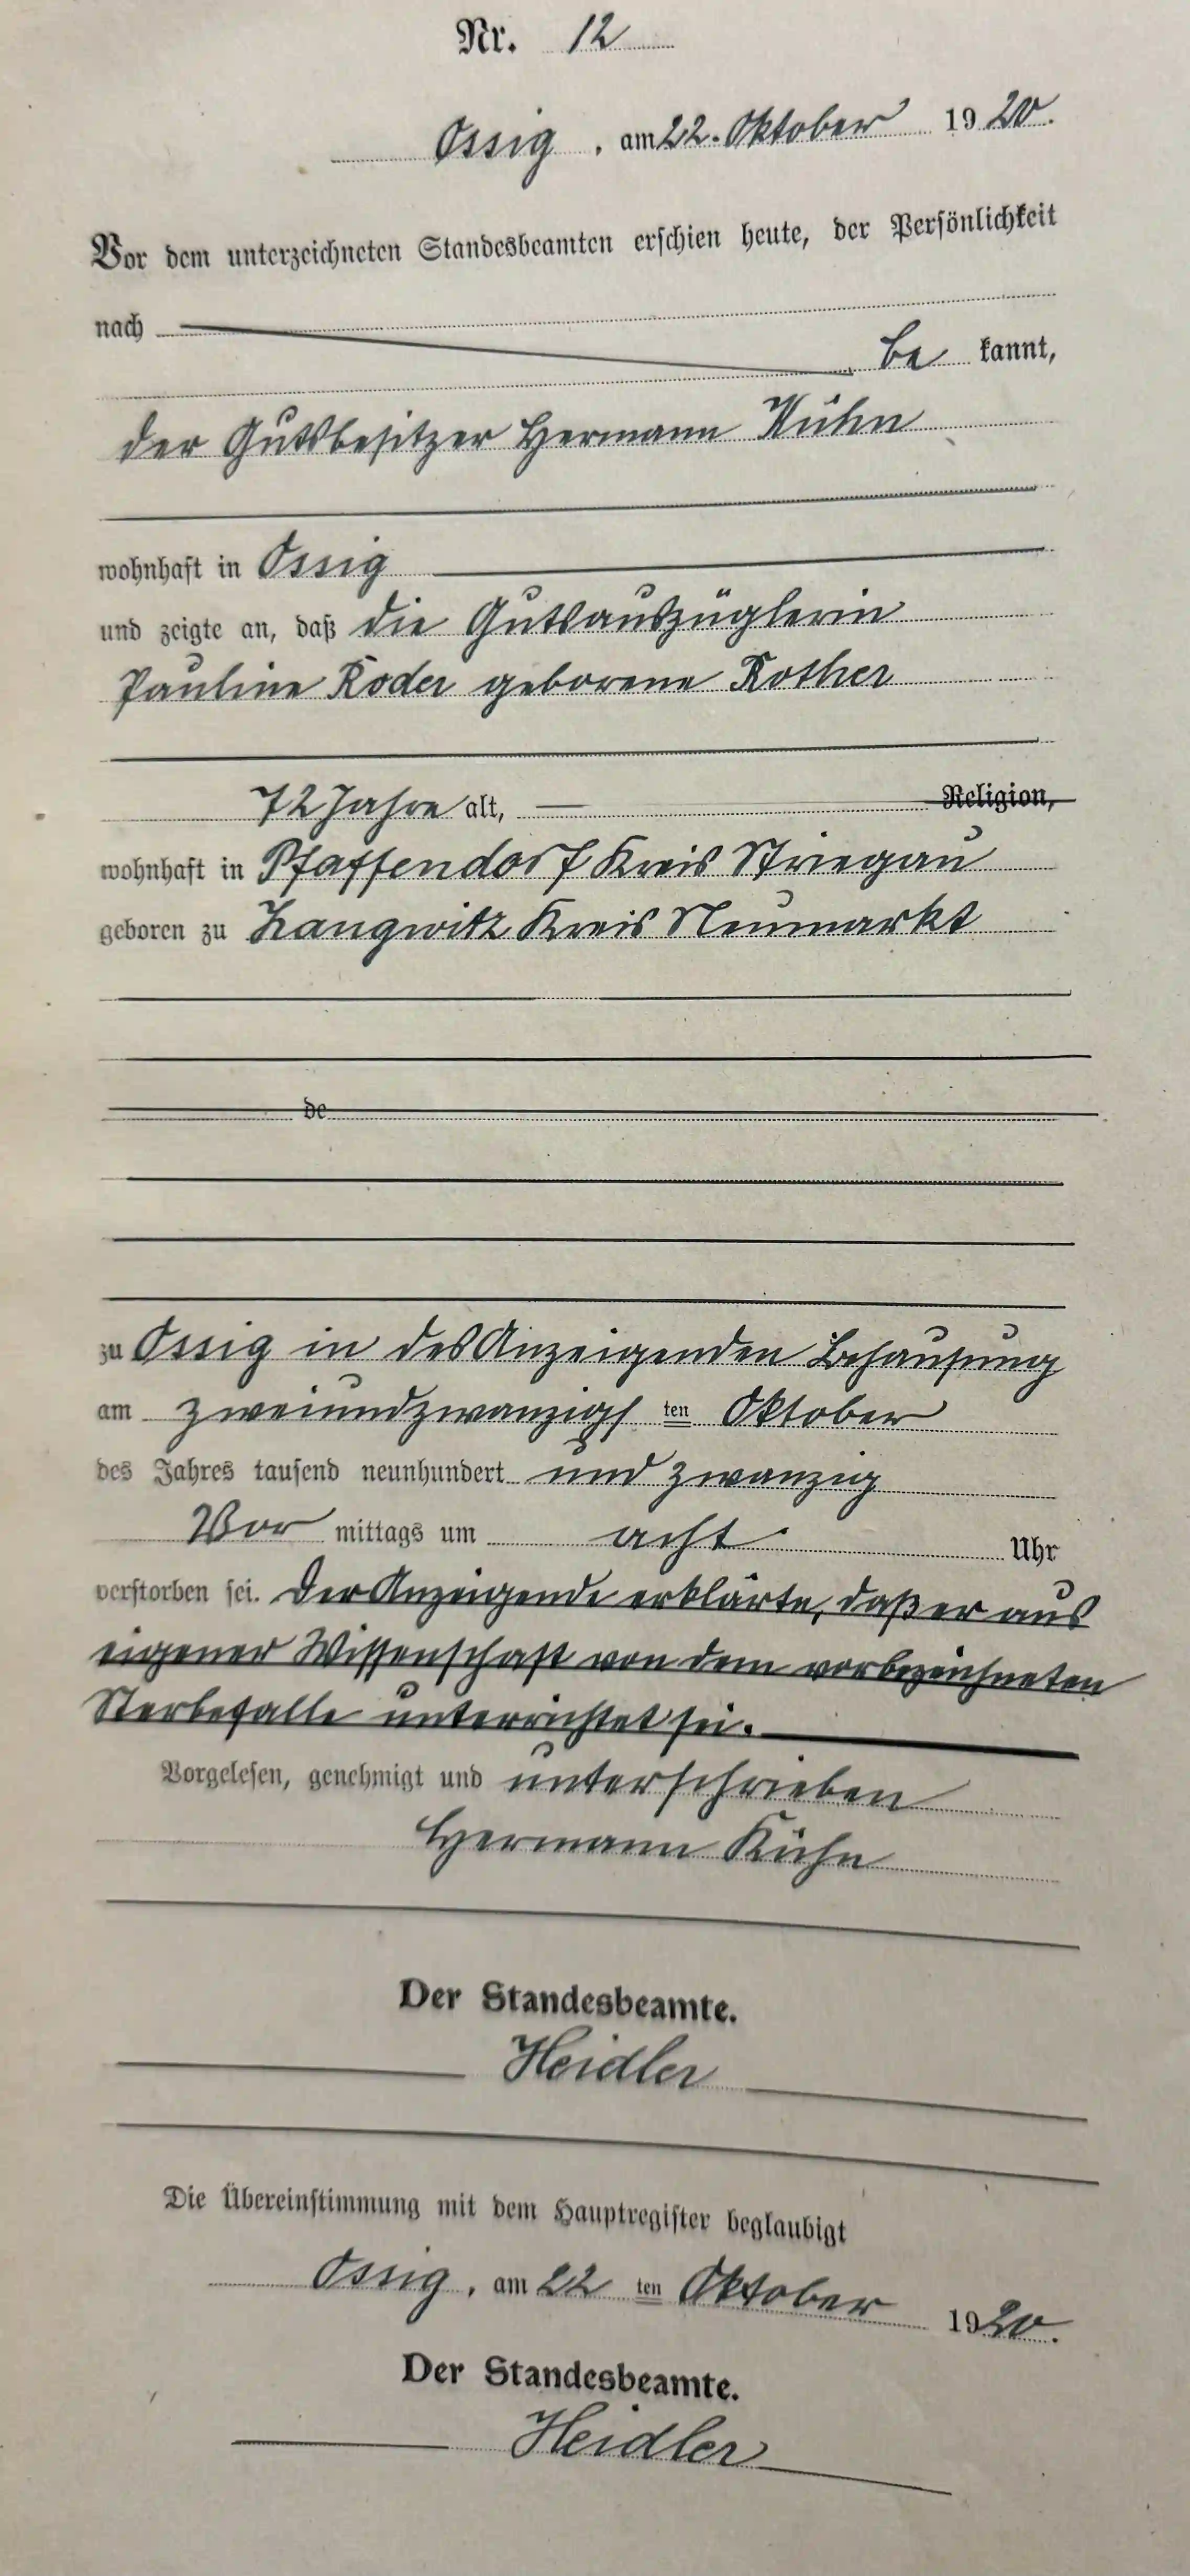 Nr. 12
Ossig, am 22. Oktober 1920.
Vor dem unterzeichneten Standesbeamten erschien heute, der Persönlichkeit
nach
be kannt,
der Gutsbesitzer Hermann Kühn
wohnhaft in Ossig
und zeigte an, daß die Gutsauszüglerin
Pauline Roder geborene Rother
72 Jahre alt, Religion,
wohnhaft in Pfaffendorf Kreis Striegau
geboren zu Langwitz Kreis Neumarkt
de
zu Ossig in des Anzeigenden Behausung
am zweiundzwanzigs ten Oktober
des Jahres tausend neunhundert und zwanzig
Vor mittags um acht Uhr
verstorben sei. Der Anzeigende erklärte, daß er aus
eigener Wissenschaft von dem vorbezeichneten
Sterbefalle unterrichtet sei.
Vorgelesen, genehmigt und unterschrieben
Hermann Kühn
Der Standesbeamte.
Heidler
Die Übereinstimmung mit dem Hauptregister beglaubigt
Ossig, am 22 ten Oktober 1920.
Der Standesbeamte.
Heidler